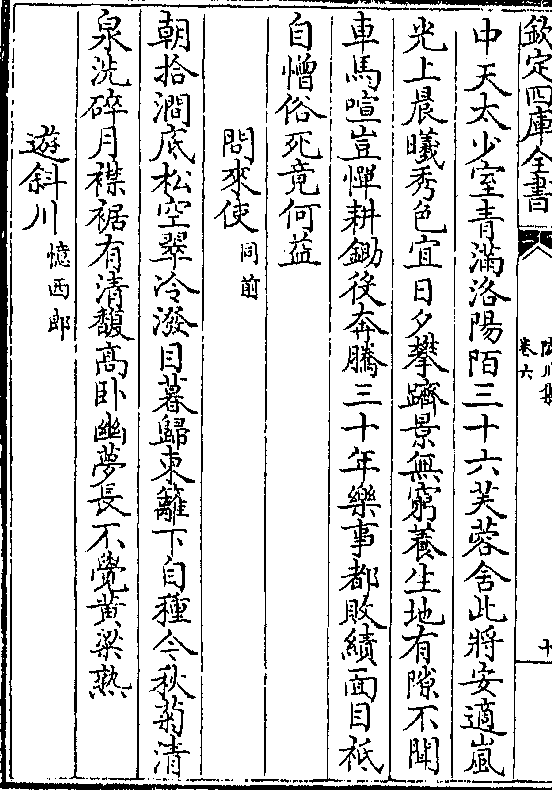 欽定四庫全書
卷六
中天太少室青滿洛陽陌三十六芙蓉舍此將安適嵐
光上晨曦秀色宜日夕攀躋景無窮養生地有隙不聞
車馬喧豈憚耕鋤後奔騰三十年樂事都敗績面目祗
自憎俗死竟何益
問來使同前
朝拾澗底松空翠冷潑目暮歸東籬下自種今秋菊清
泉洗碎月襟裾有清馥高卧幽夢長不覺黄粱熟
遊斜川憶西郎